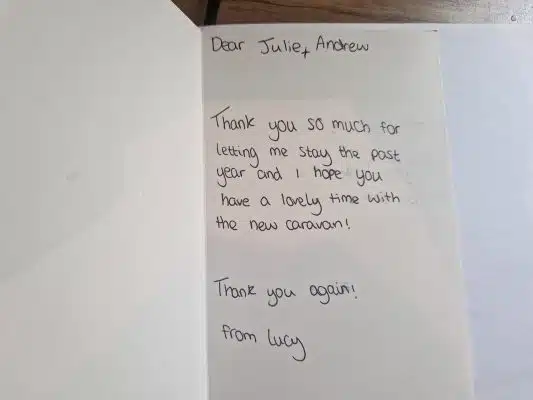 Dear Julie + Andrew
Thank you so much for
letting me stay the past
year and I hope you
have a lovely time with
the new caravan!
Thank you again!
from Lucy